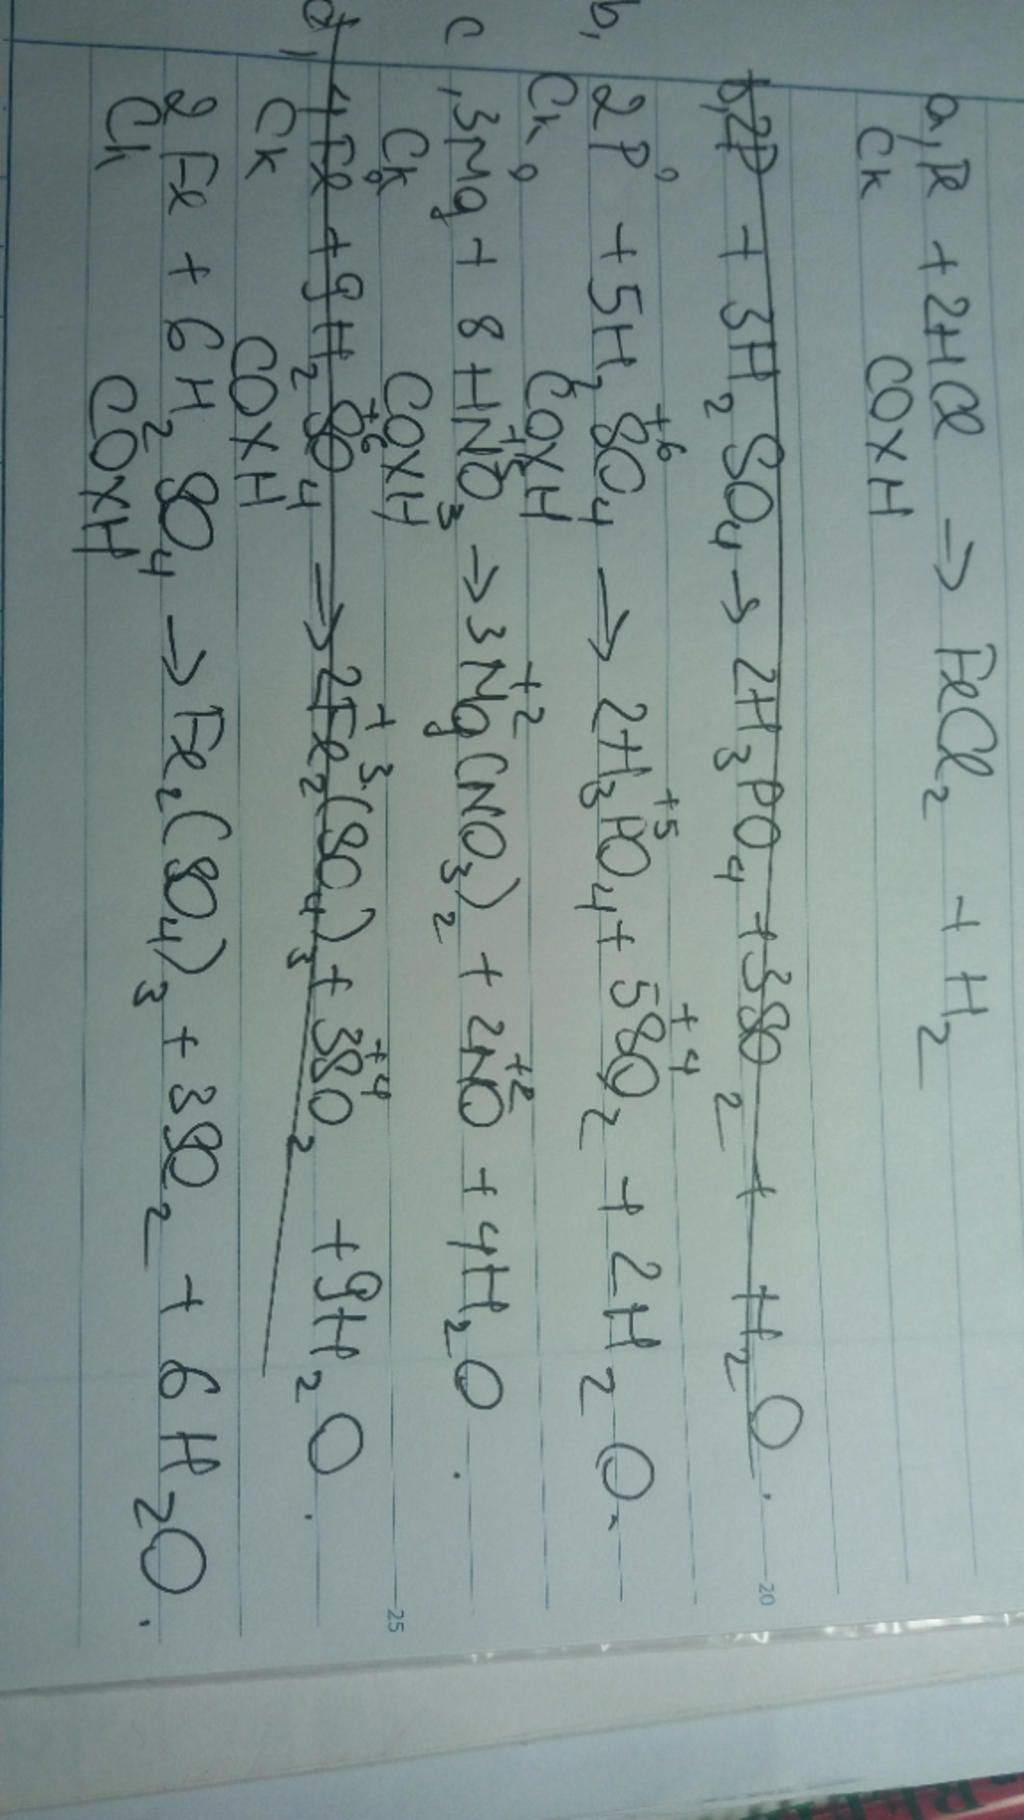 a, Fe + 2HCl → FeCl2 + H2
Ck COXH
b, 2P + 3H2SO4 → 2H3PO4 + 3SO2 + H2O.
b, 2P + 5H2SO4 → 2H3PO4 + 5SO2 + 2H2O.
0 +6 +5 +4
Ck COXH
0 +5 +2 +2
c, 3Mg + 8HNO3 → 3Mg(NO3)2 + 2NO + 4H2O.
Ck COXH
0 +6 +3 +4
d, 4Fe + 9H2SO4 → 2Fe2(SO4)3 + 3SO2 + 9H2O.
Ck COXH
2Fe + 6H2SO4 → Fe2(SO4)3 + 3SO2 + 6H2O.
Ck COXH
20
25